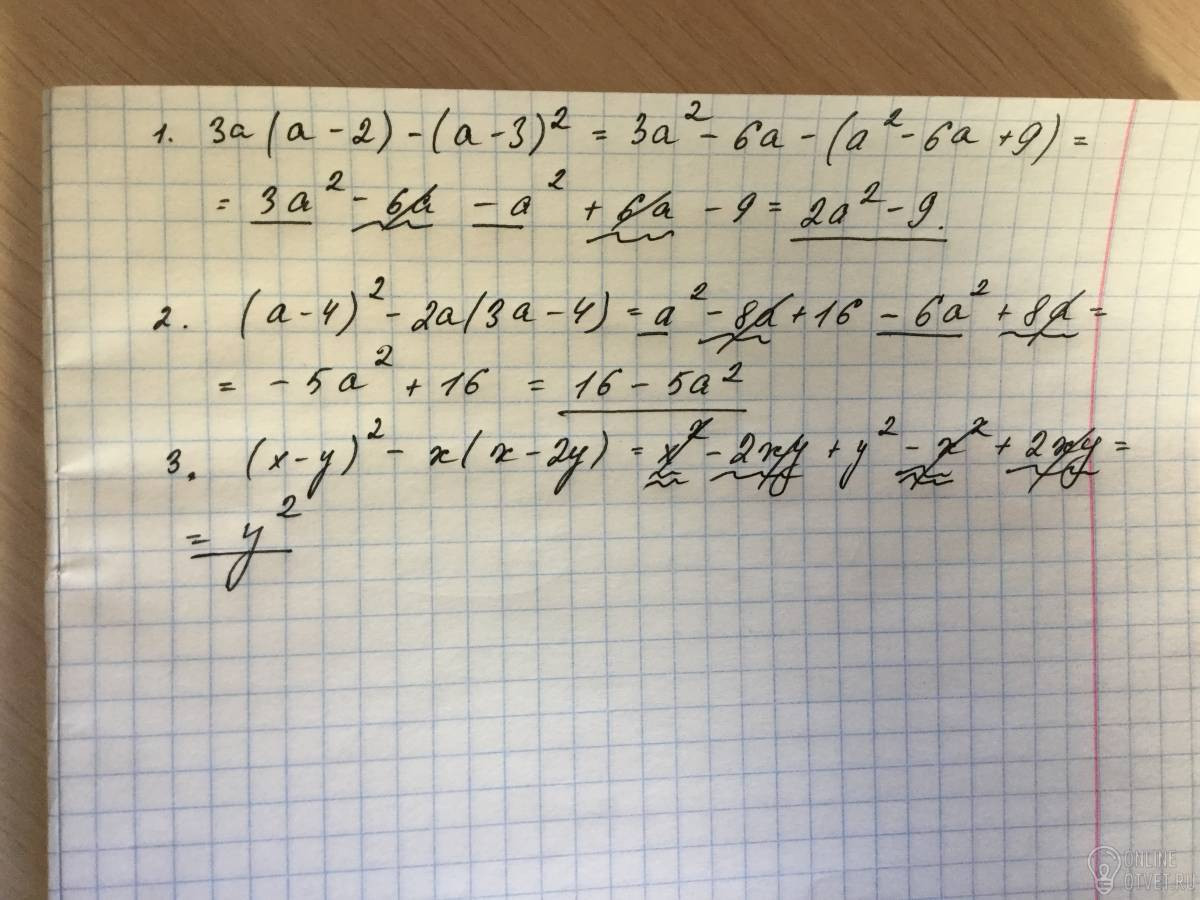 1. 3a(a-2)-(a-3)² = 3a²-6a-(a²-6a+9)=
= 3a²-6a-a²+6a-9 = 2a²-9.
2. (a-4)²-2a(3a-4)=a²-8a+16-6a²+8a=
= -5a²+16 = 16-5a²
3. (x-y)²-x(x-2y)=x²-2xy+y²-x²+2xy=
= y²
ONLINE
OTVET.RU